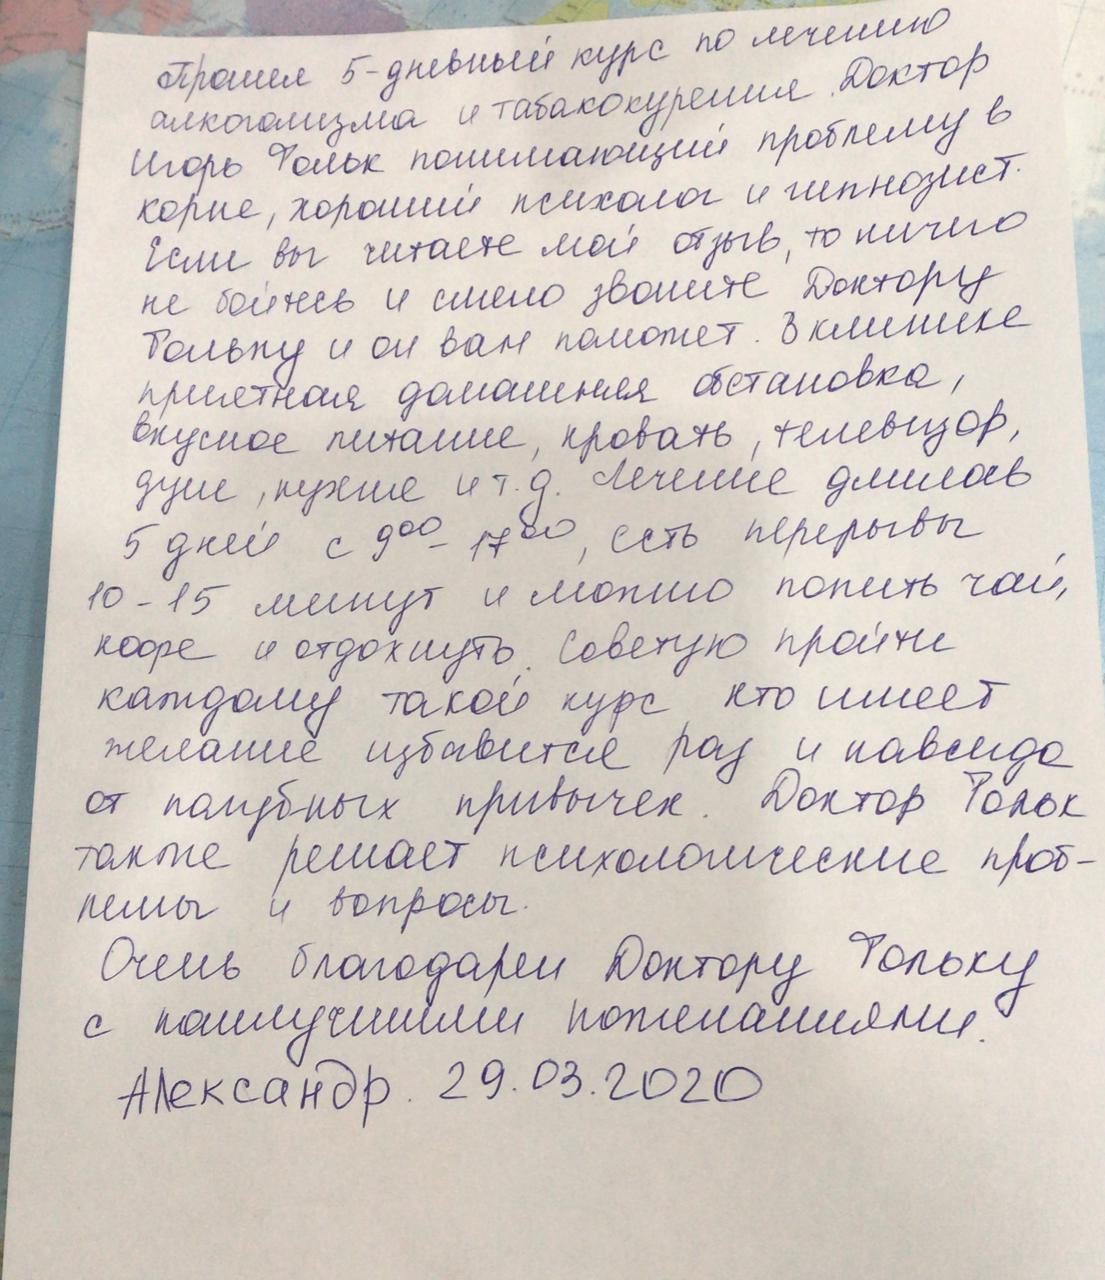 Прошел 5-дневный курс по лечению
алкоголизма и табакокурения. Доктор
Игорь Тольк понимающий проблему в
корне, хороший психолог и гипнозист.
Если вы читаете мой отзыв, то ничего
не бойтесь и смело звоните Доктору
Тольку и он вам поможет. В клинике
приятная домашняя обстановка,
вкусное питание, кровать, телевизор,
душ, кухня и т.д. Лечение длилось
5 дней с 9⁰⁰ - 17⁰⁰, есть перерывы
10-15 минут и можно попить чай,
кофе и отдохнуть. Советую пройти
каждому такой курс кто имеет
желание избавится раз и навсегда
от пагубных привычек. Доктор Тольк
также решает психологические проб-
лемы и вопросы.
Очень благодарен Доктору Тольку
с наилучшими пожеланиями.
Александр. 29.03.2020